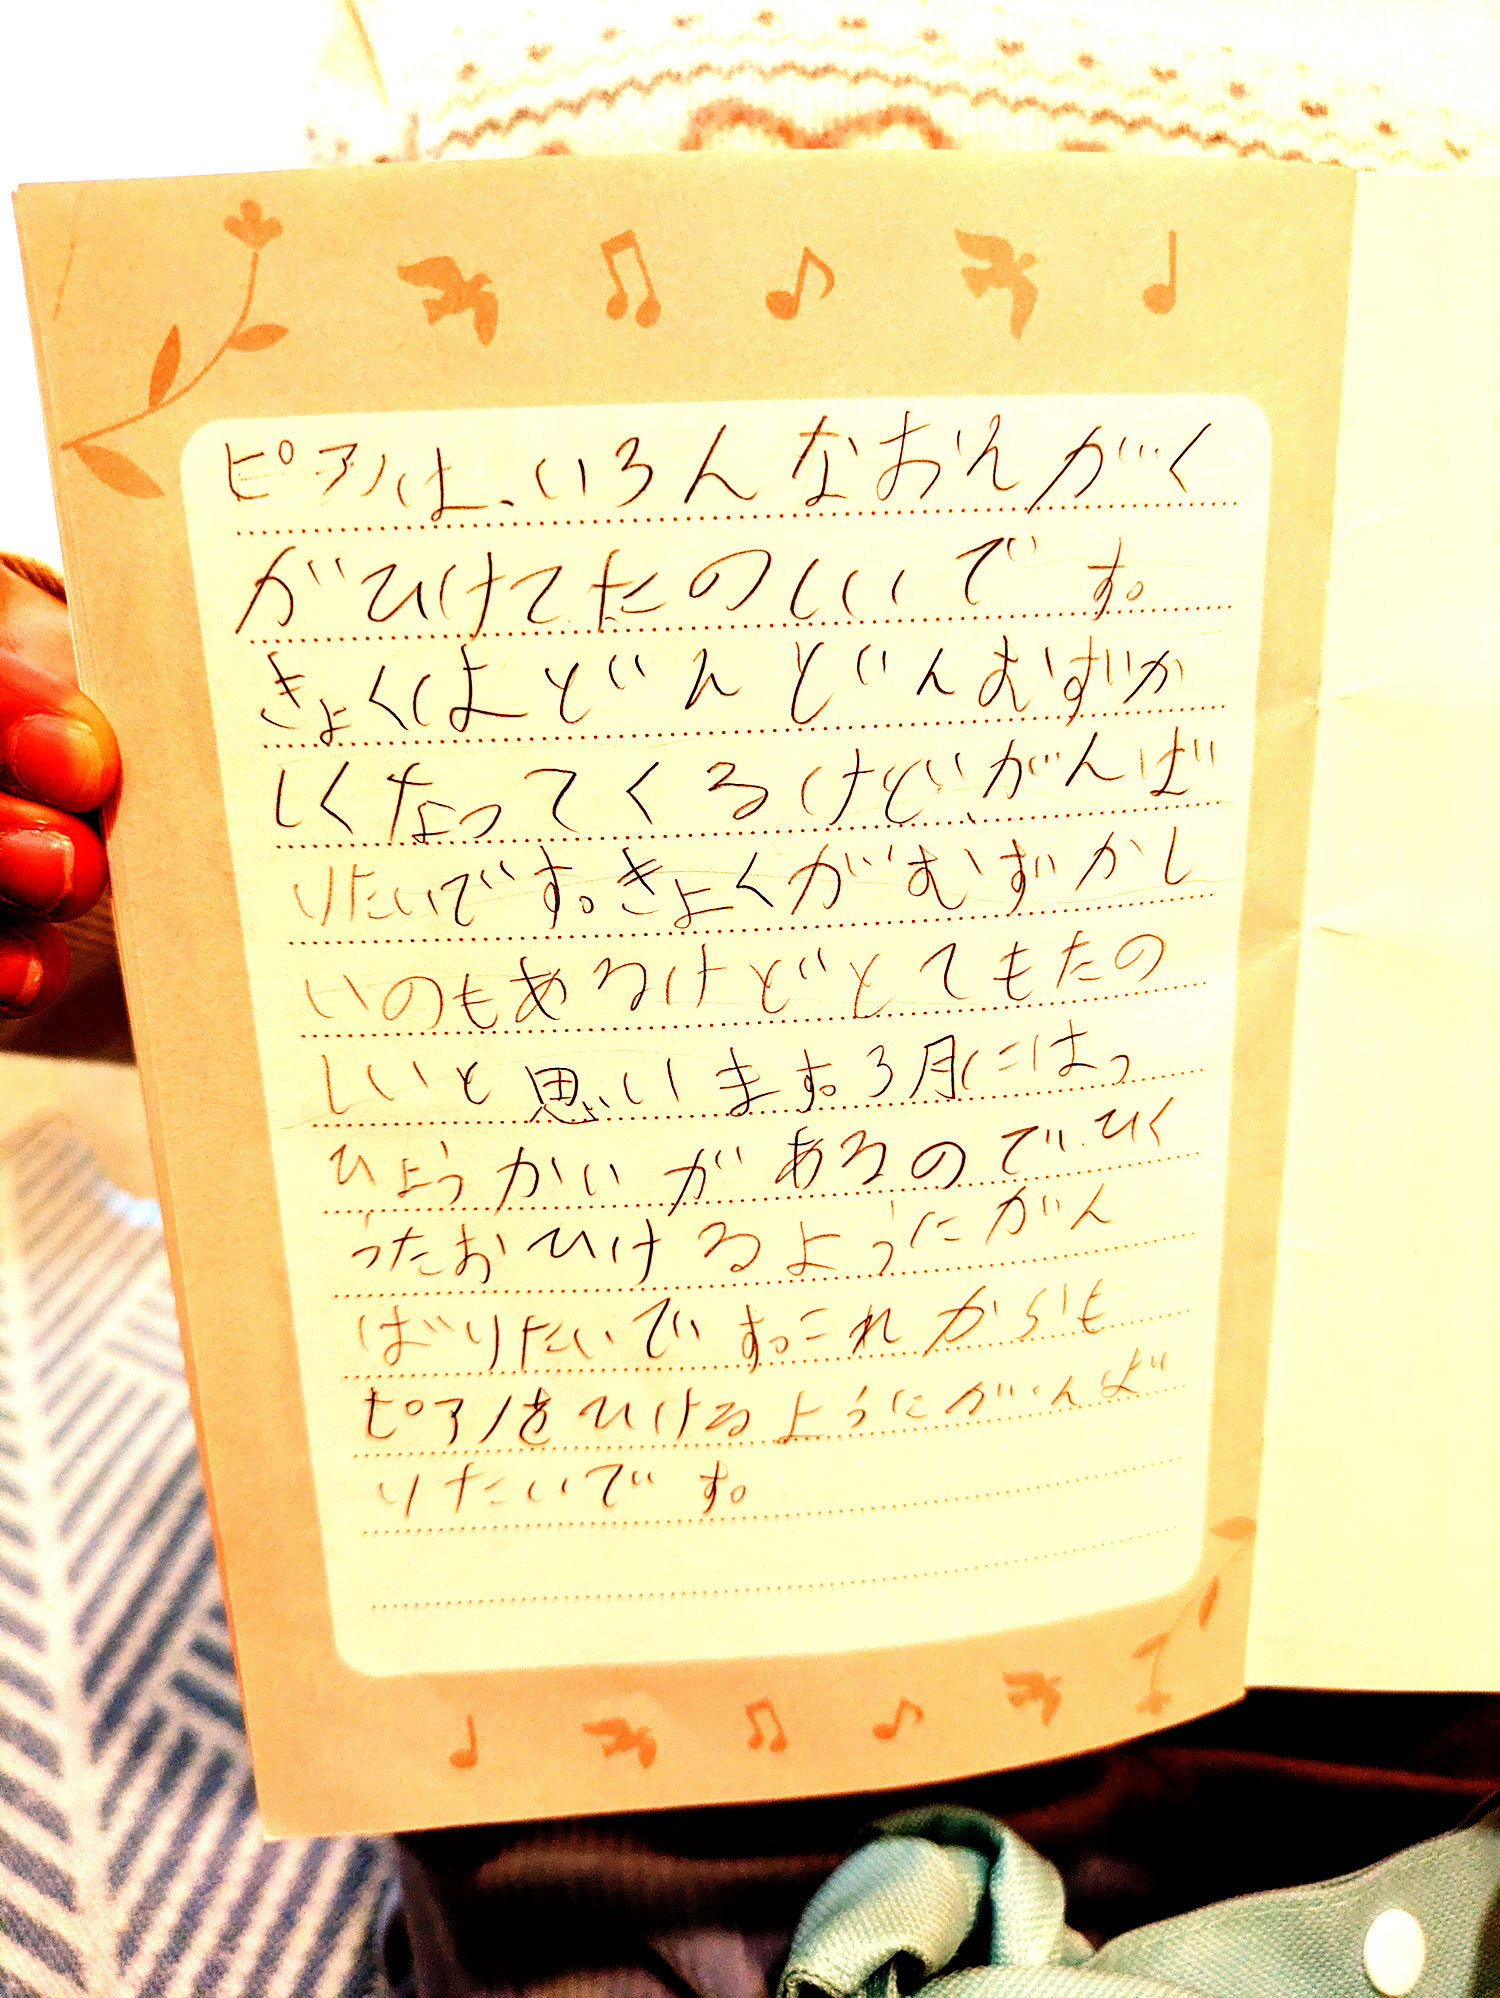 ピアノは、いろんなおんがく
がひけてたのしいです。
きょくはどんどんむずか
しくなってくるけど、がんば
りたいです。きょくがむずかし
いのもあるけどとてもたの
しいと思います。3月にはっ
ぴょうかいがあるので、ひく
うたおひけるようにがん
ばりたいです。これからも
ピアノをひけるようにがんば
りたいです。